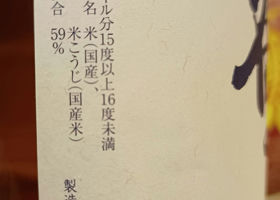 ル分15度以上16度未満
名 米(国産)、
米こうじ(国産米)
合 59%
製造